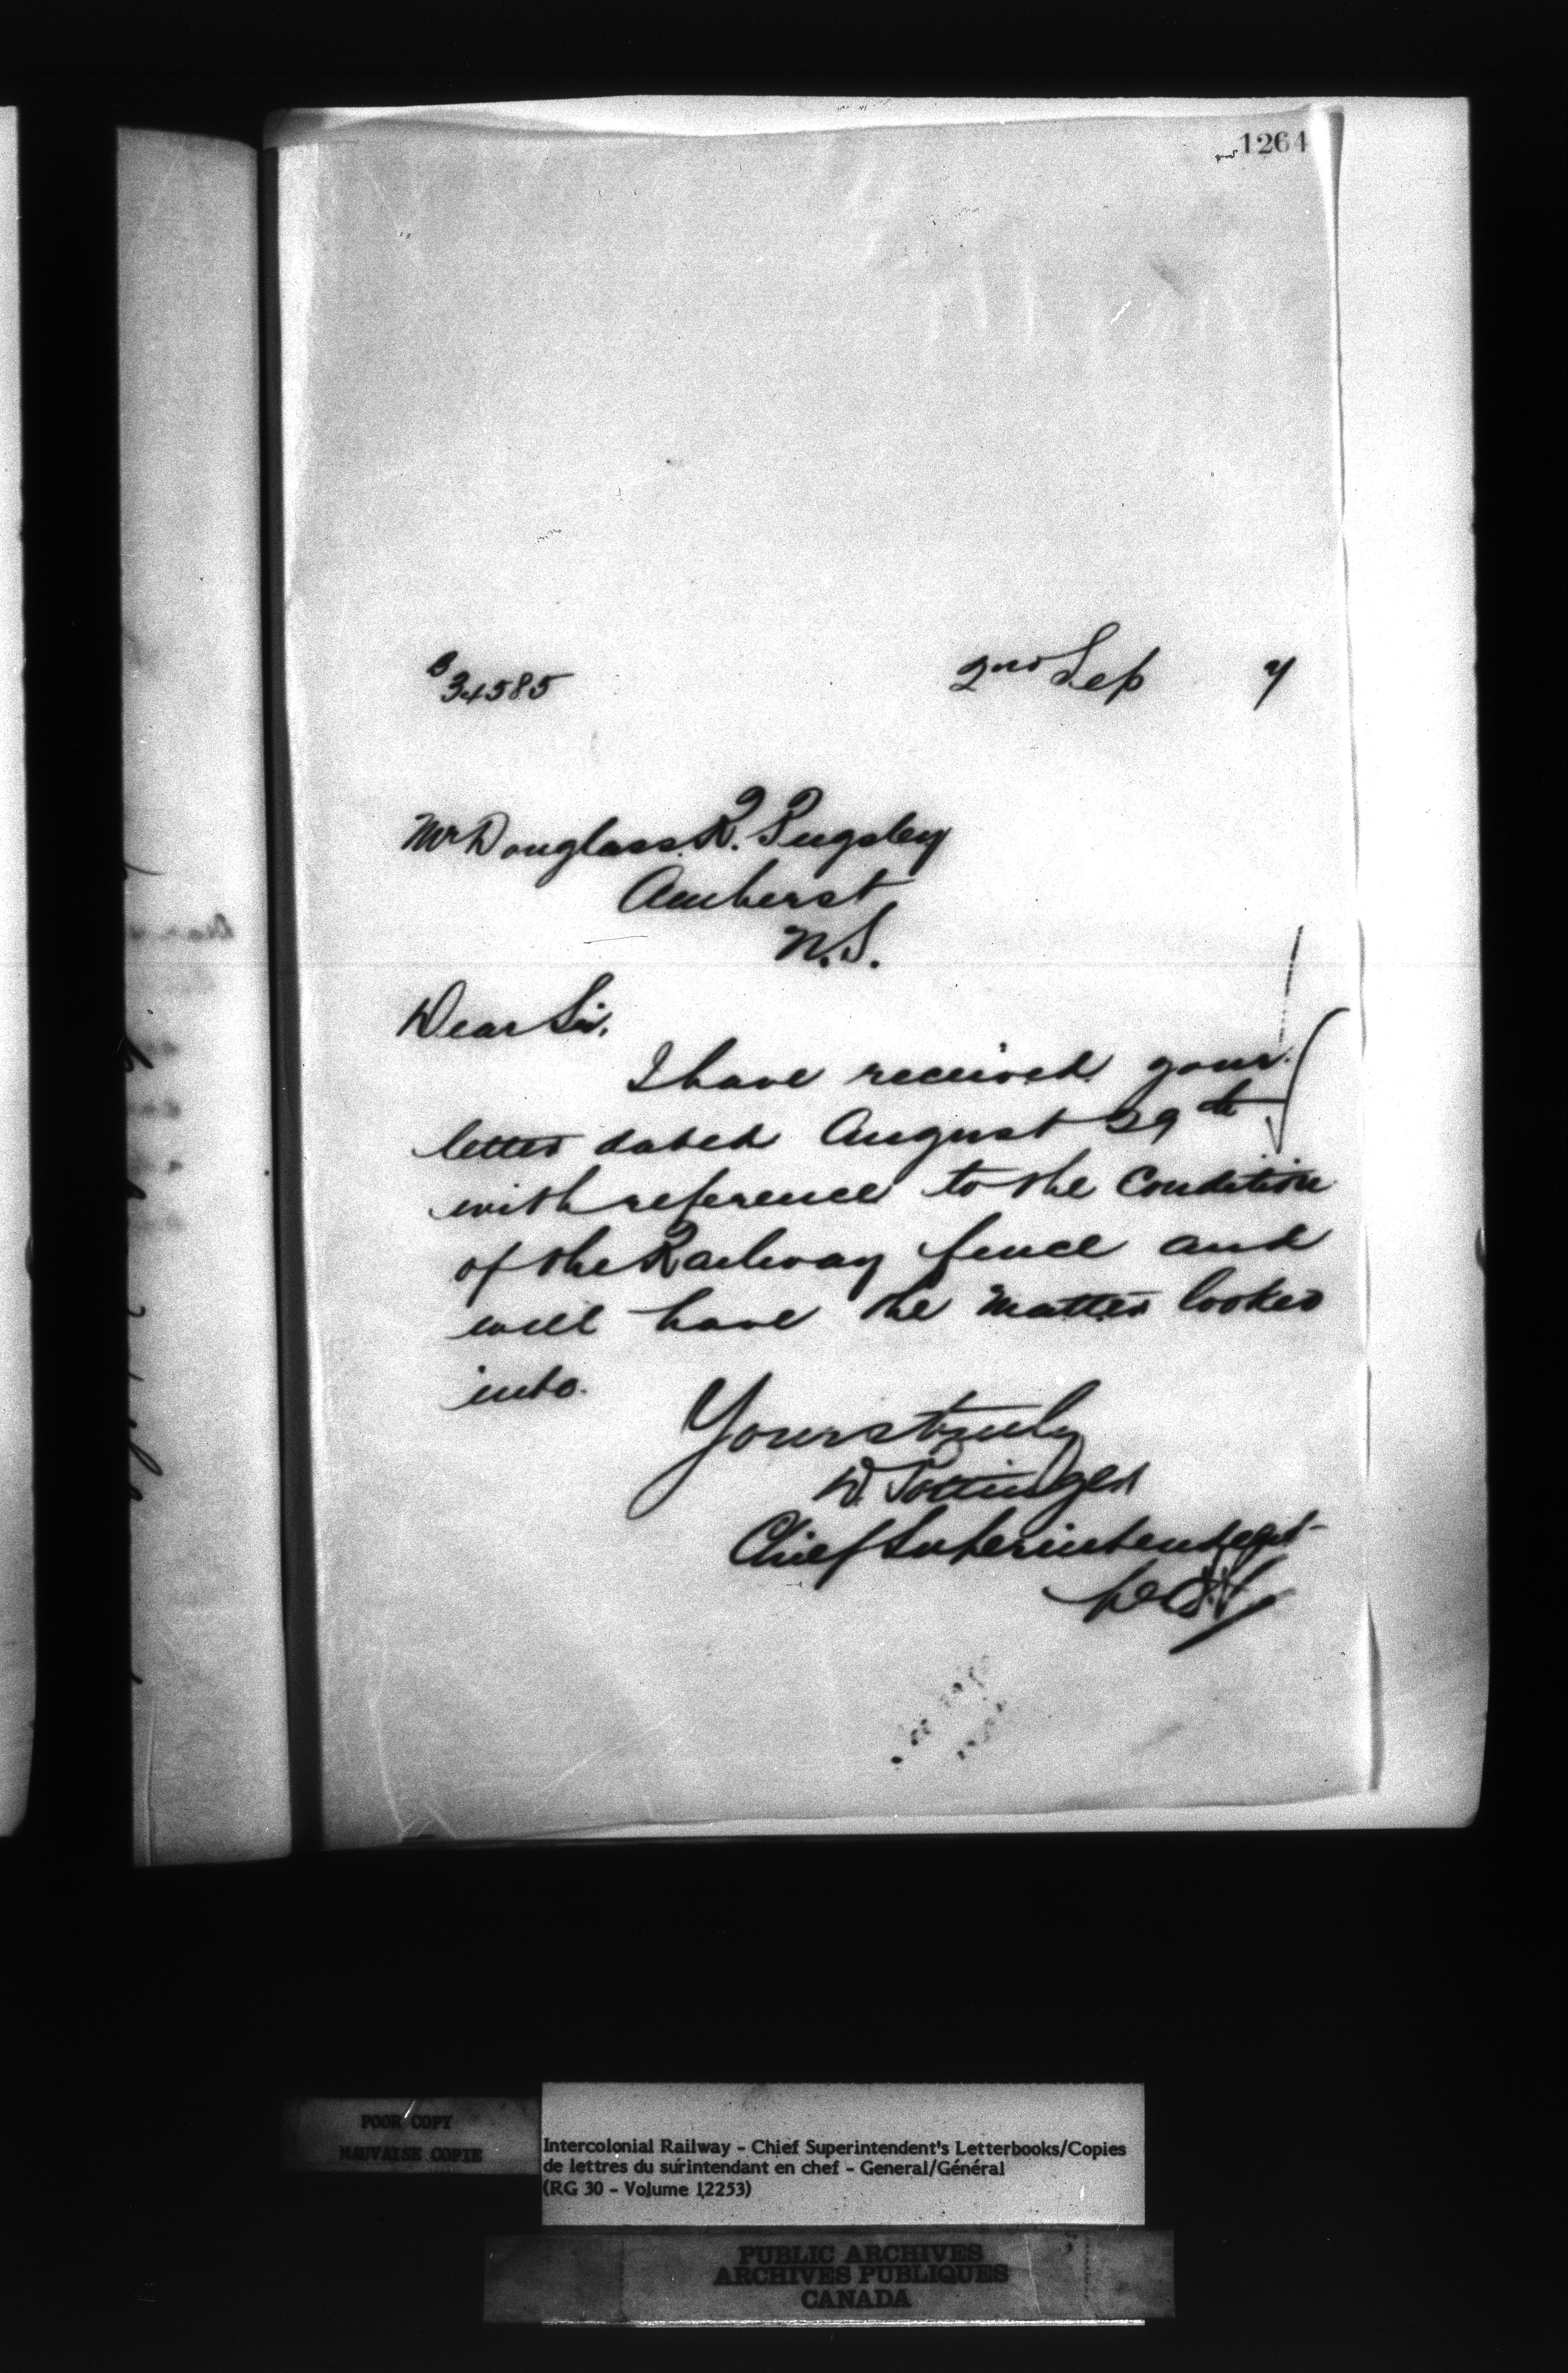 1264
B 34585 2nd Sep 7
Mr Douglass R. Pugsley
Amherst
N.S.
Dear Sir,
I have received your
letter dated August 29th
with reference to the Condition
of the Railway fence and
will have the matter looked
into.
Yours truly
D. Pottinger
Chief Superintendent
POOR COPY
MAUVAISE COPIE
Intercolonial Railway - Chief Superintendent's Letterbooks/Copies
de lettres du surintendant en chef - General/Général
(RG 30 - Volume 12253)
PUBLIC ARCHIVES
ARCHIVES PUBLIQUES
CANADA